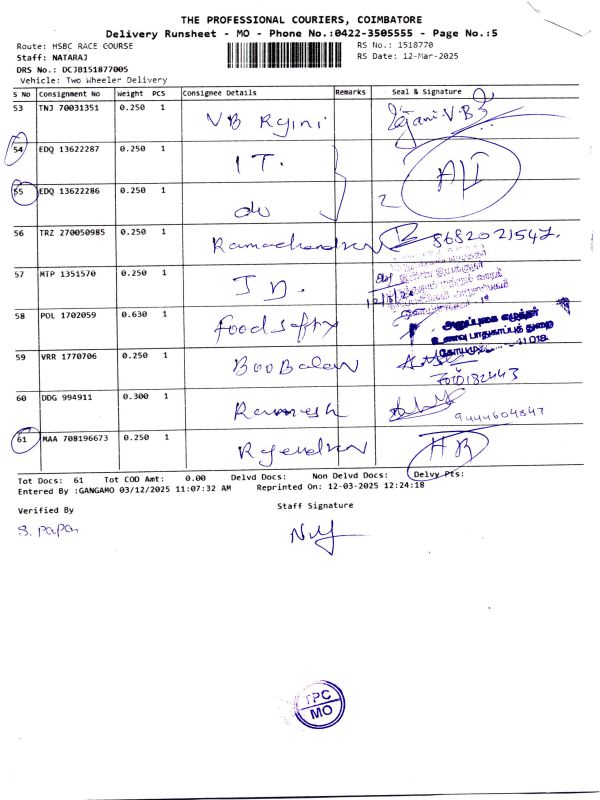 THE PROFESSIONAL COURIERS, COIMBATORE
Delivery Runsheet - MO - Phone No.:0422-3505555 - Page No.:5
Route: HSBC RACE COURSE
RS No.: 1518770
Staff: NATARAJ
RS Date: 12-Mar-2025
DRS No.: DCJB151877005
Vehicle: Two Wheeler Delivery
S No Consignment No Weight PCS Consignee Details Remarks Seal & Signature
53 TNJ 70031351 0.250 1 VB Rajini
54 EDQ 13622287 0.250 1 I T.
55 EDQ 13622286 0.250 1 do 2
56 TRZ 270050985 0.250 1 Ramachandran 8682021547.
57 MTP 1351570 0.250 1 J D.
58 POL 1702059 0.630 1 Food Safty
அலுவலக எழுத்தர்
உணவு பாதுகாப்புத் துறை
59 VRR 1770706 0.250 1 BooBalan
60 DDG 994911 0.300 1 Ramesh 9444604847
61 MAA 708196673 0.250 1 Rajendran
Tot Docs: 61 Tot COD Amt: 0.00 Delvd Docs: Non Delvd Docs: Delvy Pts:
Entered By :GANGAMO 03/12/2025 11:07:32 AM Reprinted On: 12-03-2025 12:24:18
Verified By
Staff Signature
TPC
MO